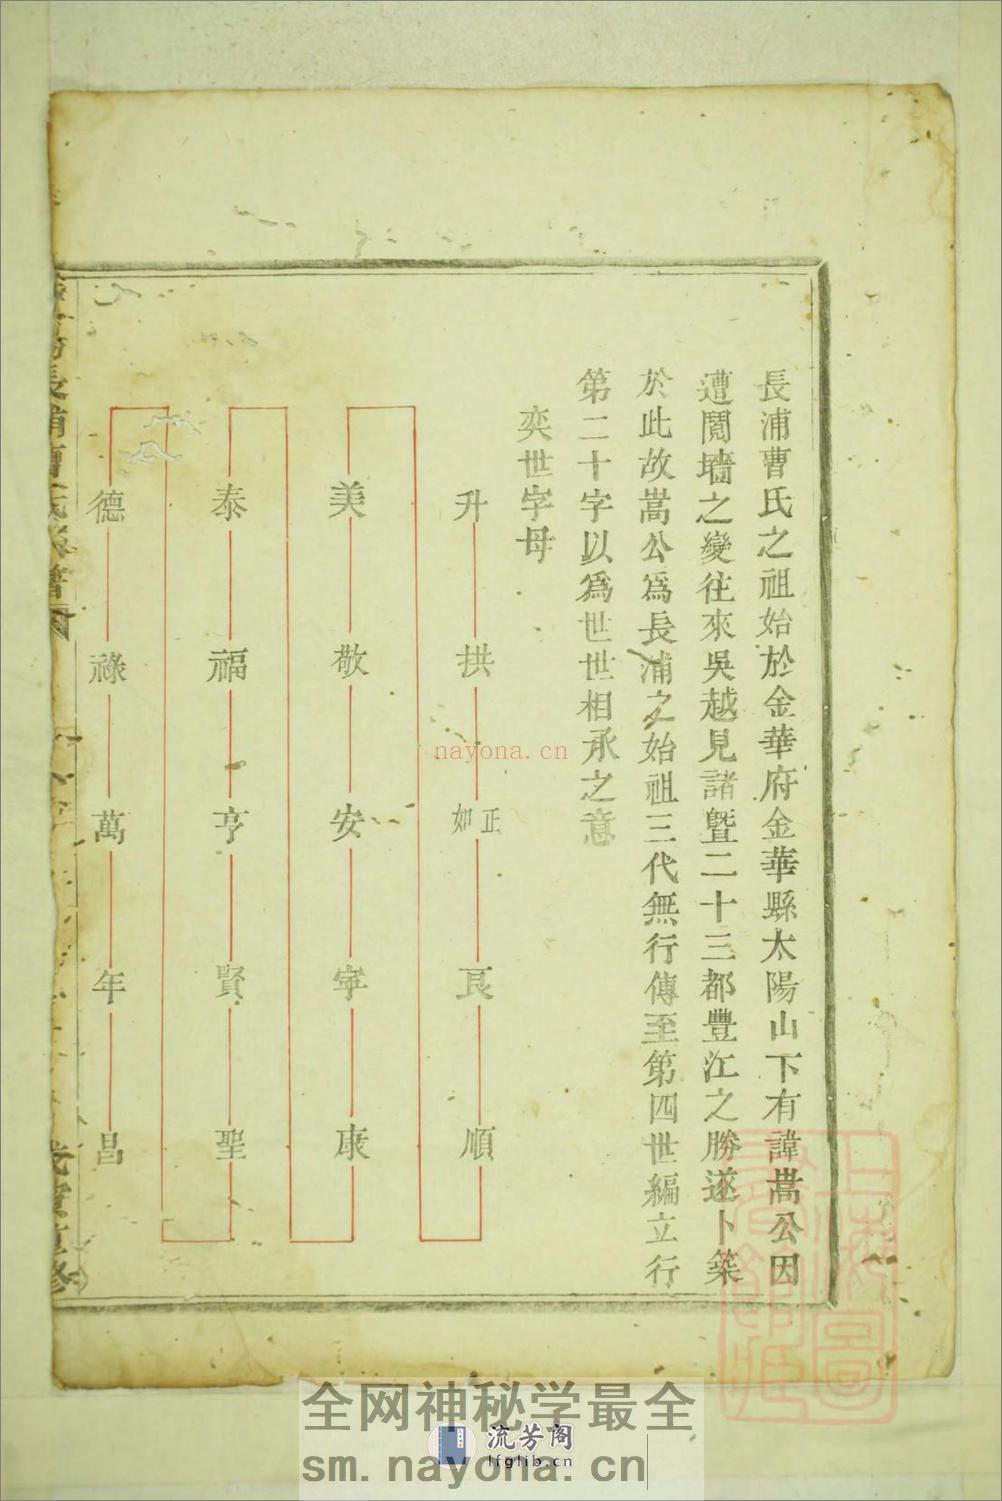 長浦曹氏之祖始於金華府金華縣太陽山下有諱嵩公因
遭鬩墻之變往來吳越見諸暨二十三都豐江之勝遂卜築
於此故嵩公爲長浦之始祖三代無行傳至第四世編立行
第二十字以爲世世相承之意
奕世字母
升 拱 正如 艮 順
美 敬 安 寧 康
泰 福 亨 賢 聖
德 祿 萬 年 昌
長浦曹氏宗譜
上海圖書館藏
nayona.cn
全网神秘学最全
流芳阁
lfglib.cn
sm.nayona.cn